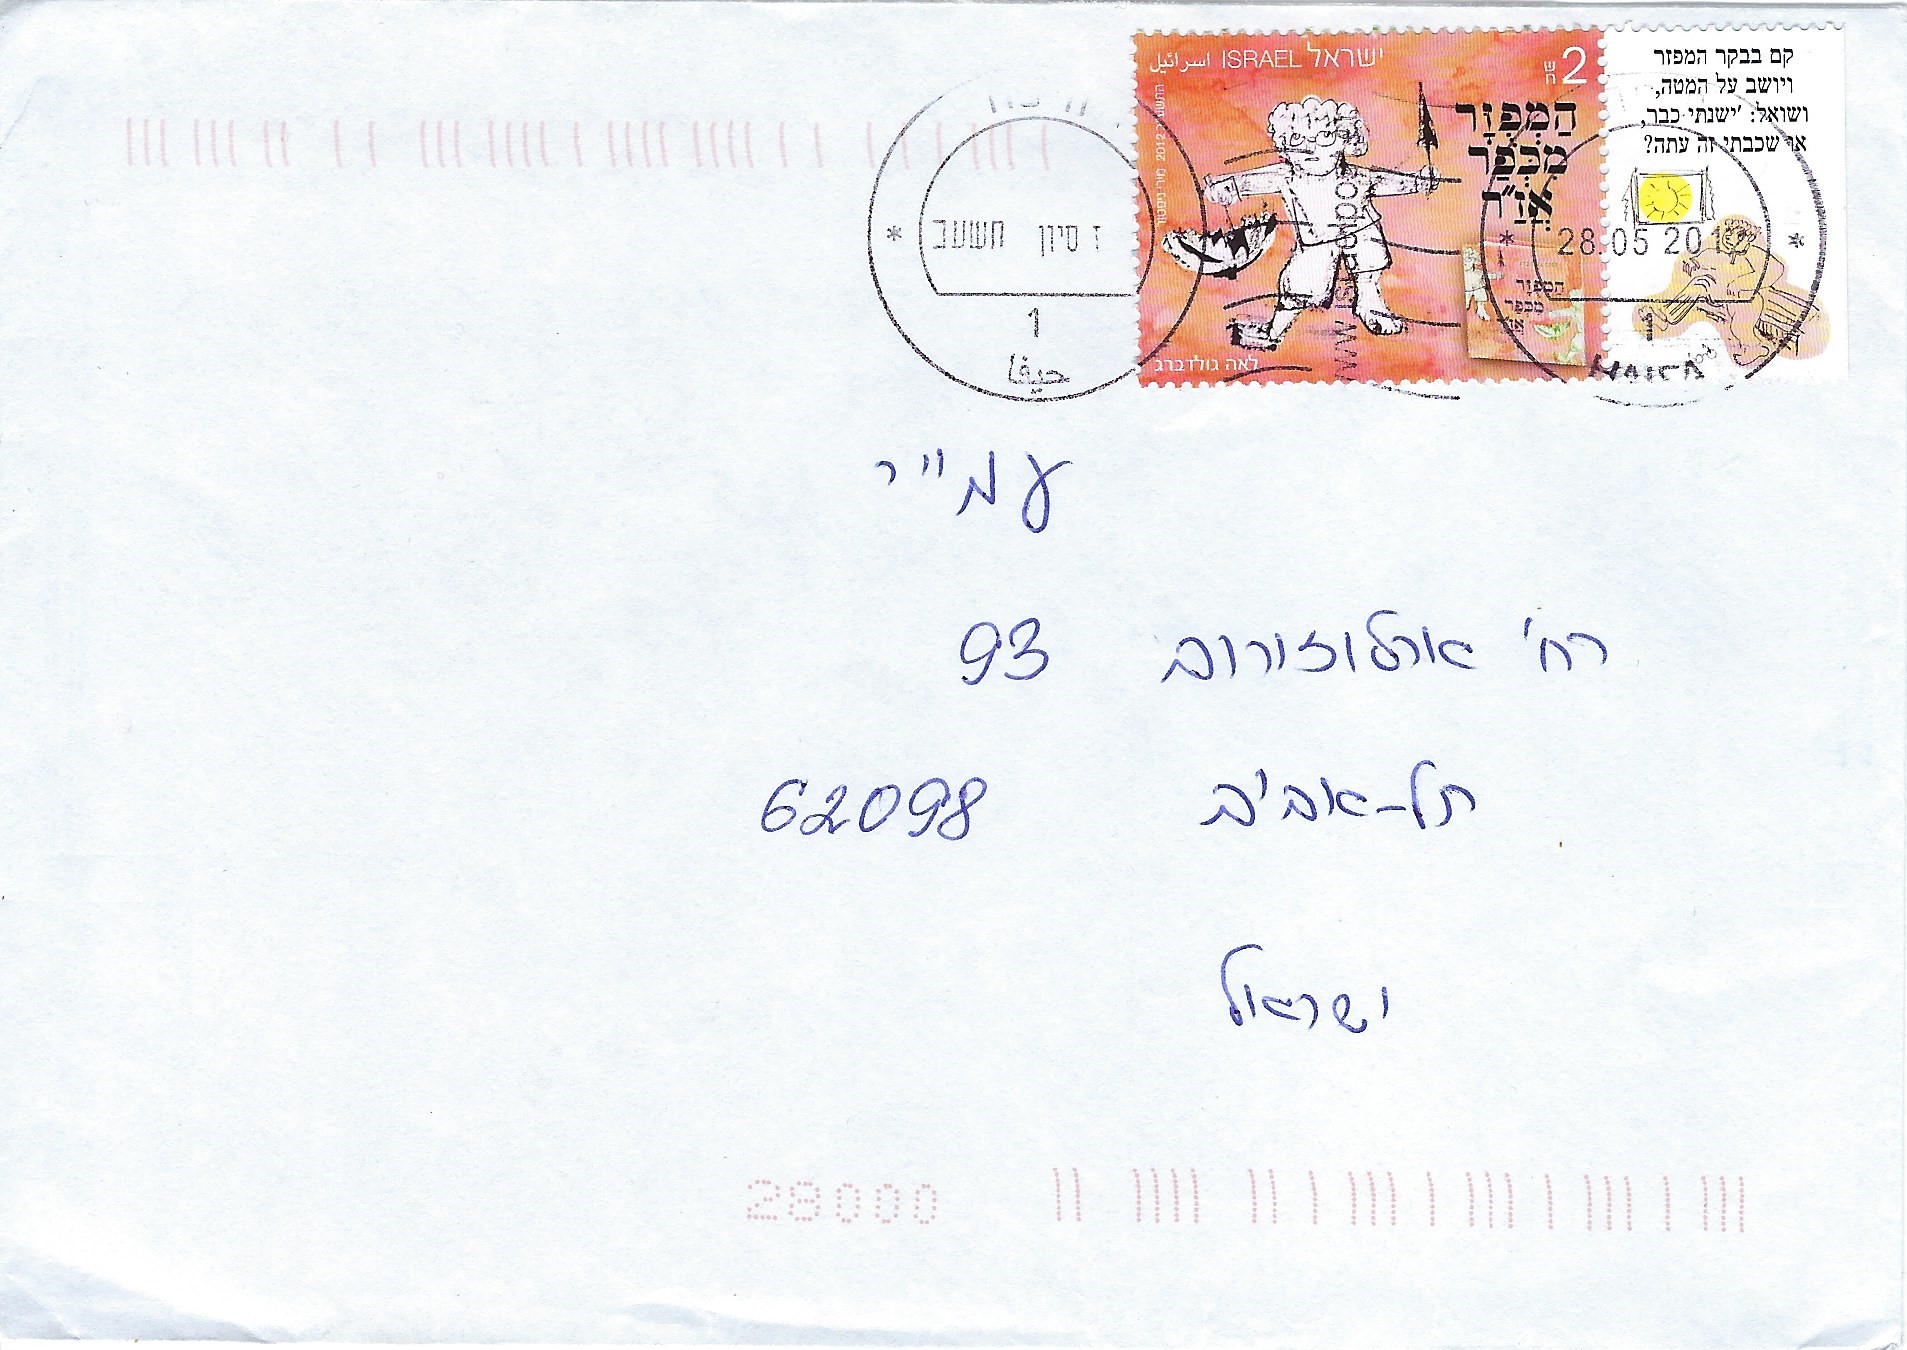 ישראל ISRAEL اسرائيل
2 ש"ח
המְפֻזָּר
מִכְּפַר
אֲזַ"ר
לאה גולדברג
קם בבקר המפזר
ויושב על המטה,
ושואל: 'ישנתי כבר,
או שכבתי זה עתה?
המפוזר
מכפר
* ז סיון תשעב
1
حيفا
* 28 05 201 *
1
HAIFA
עמ"י
רח' ארלוזורוב 93
תל-אביב 62098
ישראל
28000